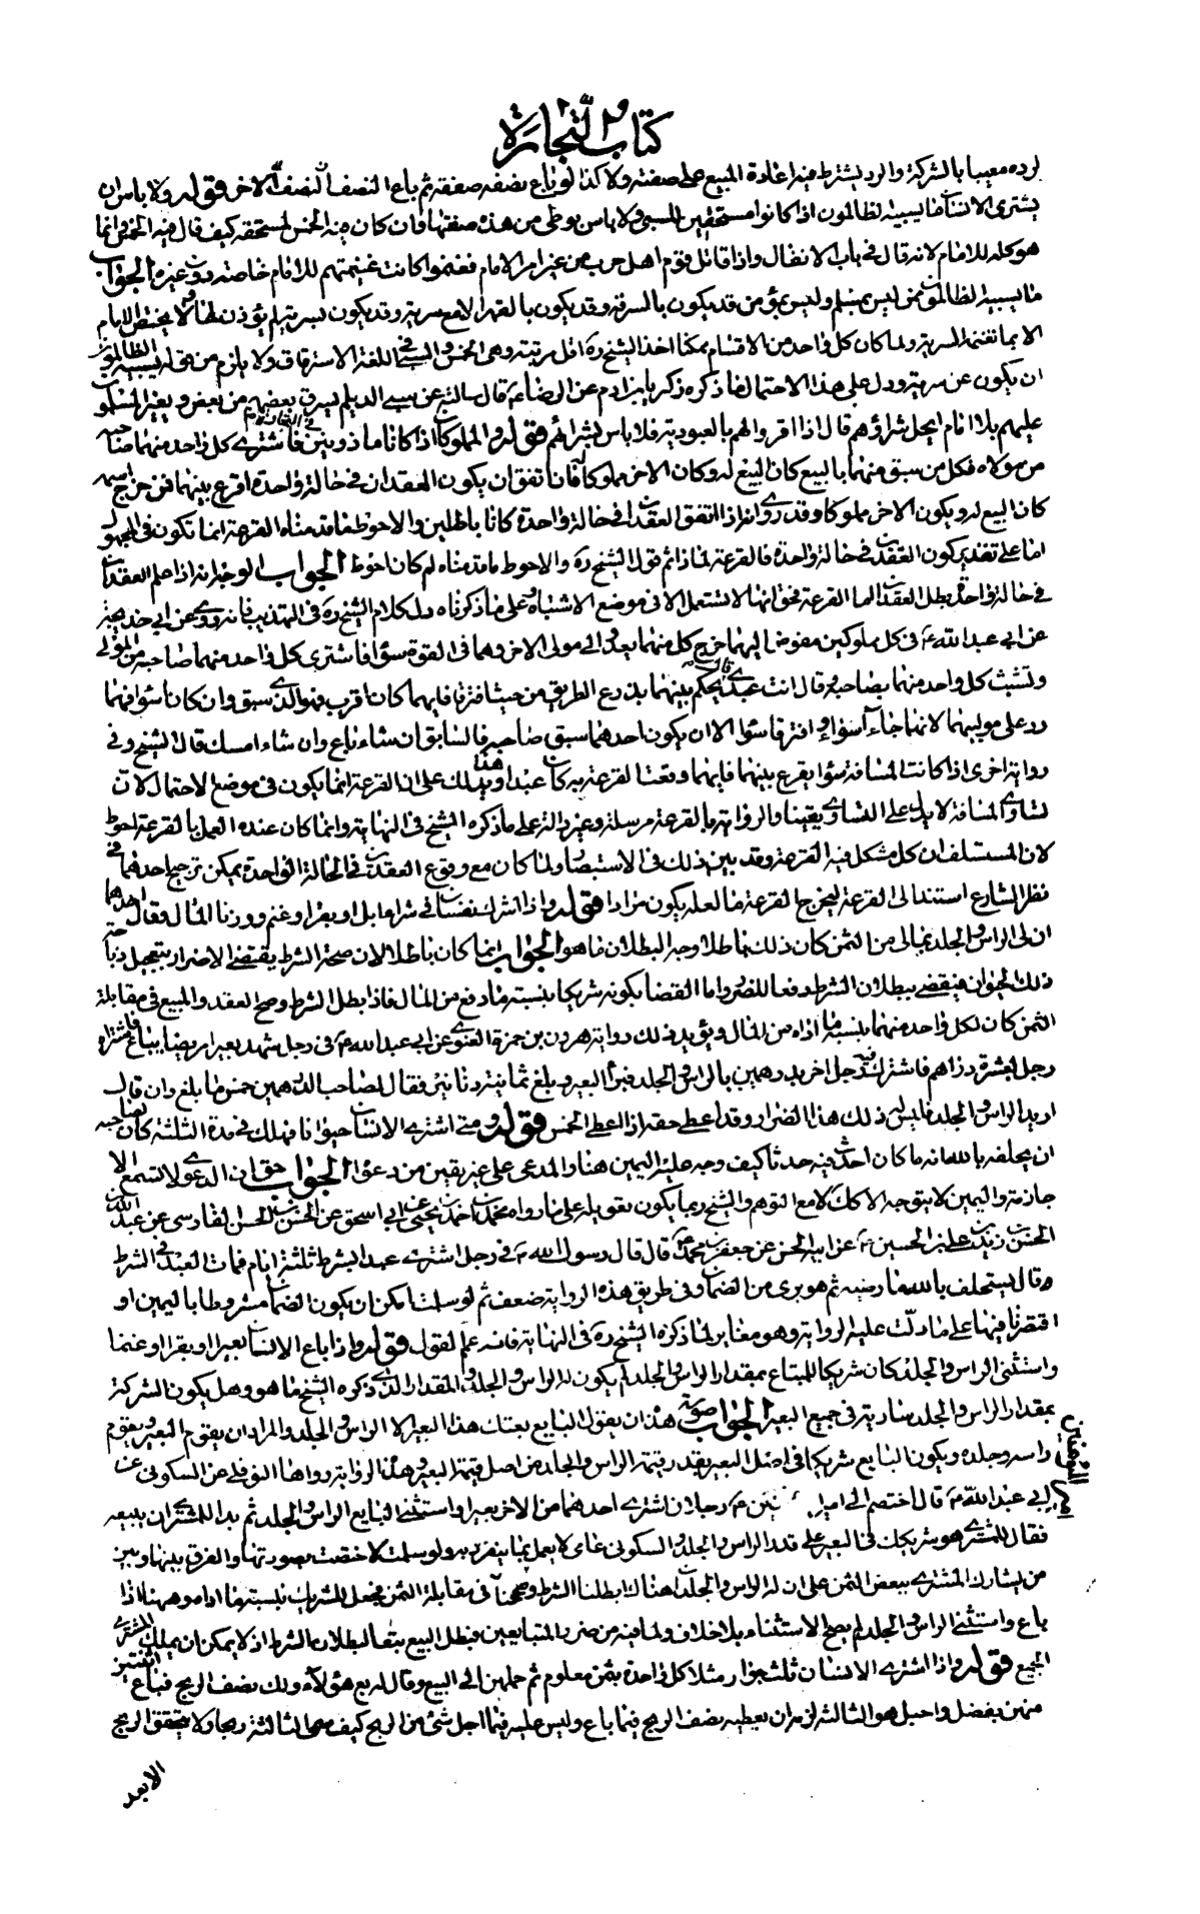 كتاب التجارة
لرده معيبا بالشركة والرد يشترط فيه اعادة المبيع على صفته ولا كذا لو باع نصفه صفقة ثم باع النصف النصف الآخر قوله ولا باس ان
يشترى الانسان ما يسبيه الظالمون اذا كانوا مستحقين للسبى ولا باس بوطى من هذه صفتها وان كان فيه الخمس لمستحقه كيف قال فيه الخمس وانما
هو كله للامام لانه قال فى باب الانفال واذا قاتل قوم اهل حرب من غير امر الامام فغنموا كانت غنيمتهم للامام خاصة دون غيره الجواب
ما يسبيه الظالمون ممن ليس بمسلم وليس بمؤمن قد يكون بالسرقة وقد يكون بالقهر لا مع سرية وقد يكون بسرية لم يؤذن لها ولا يختص الامام
الا بما تغنمه السرية ولما كان كل واحد من الاقسام ممكنا اخذ الشيخ ره اقل مرتبته وهى الخمس والسبى فى اللغة الاسترقاق ولا يلزم من قوله يسبيه الظالمون
ان يكون عن سرية ودل على هذا الاحتمال ما ذكره زكريا بن ادم عن الرضا ع قال سالته عن سبى الديلم يسرق بعضهم من بعض ويغير المسلمون
عليهم بلا امام ايحل شراؤهم قال اذا اقروا لهم بالعبودية فلا باس بشرائهم قوله والمملوكان اذا كانا ماذونين فى التجارة فاشترى كل واحد منهما صاحبه
من مولاه فكل من سبق منهما بالبيع كان البيع له وكان الاخر مملوكا فان اتفق ان يكون العقدان فى حالة واحدة اقرع بينهما فمن خرج اسمه
كان البيع له ويكون الاخر مملوكا وقد روى انه اذا اتفق العقدان فى حالة واحدة كانا باطلين والاحوط ما قدمناه القرعة انما تكون فى المجهول
اما على تقدير كون العقدين فى حالة واحدة فالقرعة لماذا ثم قول الشيخ ره والاحوط ما قدمناه لم كان احوط الجواب الوجه انه اذا علم العقدان
فى حالة واحدة بطل العقدان اما القرعة فحق انها لا تستعمل الا فى موضع الاشتباه وعلى ما ذكرناه دل كلام الشيخ ره فى التهذيب فانه روى عن ابى خديجة
عن ابى عبد الله ع فى كل مملوكين مفوض اليهما خرج كل منهما يعدو الى مولى الاخر وهما فى القوة سواء فاشترى كل واحد منهما صاحبه من المولى
وتشبث كل واحد منهما بصاحبه وقال انت عبدى قال يحكم بينهما بذرع الطريق من حيث افترقا فايهما كان اقرب فهو الذى سبق وان كان سواء فهما
رد على موليهما لانهما جاءا سواء وافترقا سواء الا ان يكون احدهما سبق صاحبه فالسابق ان شاء باع وان شاء امسك قال الشيخ وفى
رواية اخرى اذا كانت المسافة سواء يقرع بينهما فايهما وقعت القرعة به كان عبدا ويدلك على هذا ان القرعة انما يكون فى موضع الاحتمال لان
تساوى المسافة لا يدل على التساوى يقينا والرواية بالقرعة مرسلة وغير دالة على ما ذكره الشيخ فى النهاية وانما كان عنده العمل بالقرعة احوط
لان المستسلف ان كل مشكل فيه القرعة وقد بين ذلك فى الاستبصار ولما كان مع وقوع العقدين فى الحالة الواحدة يمكن ترجيح احدهما فى
نظر الشارع استند الى القرعة ليخرج القرعة ما لعله يكون مرادا قوله واذا اشترك نفسان فى شراء ابل او بقر او غنم ووزنا المال وقال احدهما
ان لى الراس والجلد بمالى من الثمن كان ذلك باطلا وجه البطلان ما هو الجواب انما كان باطلا لان صحة الشرط يقتضى الاضرار بتعجيل
ذلك الحيوان فيقضى ببطلان الشرط دفعا للضرر واما القضا بكونه شريكا بنسبة ما دفع من المال فاذا بطل الشرط وصح العقد والمبيع فى مقابلة
الثمن كان لكل واحد منهما بنسبة ما اداه من المال ويؤيد ذلك رواية هرون بن حمزة الغنوى عن ابى عبد الله ع فى رجل شهد بعيرا مريضا يباع فاشتراه
رجل بعشرة دراهم فاشترك فيه رجل اخر بدرهمين بالراس والجلد فبرأ البعير وبلغ ثمانية دنانير فقال لصاحب الدرهمين خمس ما بلغ وان قال
اريد الراس والجلد فليس له ذلك هذا الضرار وقد اعطى حقه اذا اعطى الخمس قوله ومتى اشترى الانسان حيوانا فهلك فى مدة الثلثة كان لصاحبه
ان يحلفه بالله انه ما كان احدث فيه حدثا كيف وجه عليه اليمين هنا والمدعى على غير يقين من دعواه الجواب حق ان الدعوى لا تسمع الا
جازمة واليمين لا يتوجه الا كذلك لا مع التوهم والشيخ ربما يكون تعويله على ما رواه محمد بن احمد بن يحيى عن ابى اسحق عن الحسن بن الحسن الفارسى عن عبد الله بن
الحسن بن زيد بن على بن الحسين ع عن ابيه الحسن عن جعفر بن محمد ع قال قال رسول الله ص فى رجل اشترى عبدا بشرط ثلثة ايام فمات العبد فى الشرط
قال يستحلف بالله ما رضيه ثم هو برى من الضمان وفى طريق هذه الرواية ضعف ثم لو سلمت امكن ان يكون الضمان مشروطا باليمين او
اقتصرنا فيها على ما دلت عليه الرواية وهو مغاير لما ذكره الشيخ ره فى النهاية فانه عمم القول قوله واذا باع الانسان بعيرا او بقرا او غنما
واستثنى الراس والجلد كان شريكا للمبتاع بمقدار الراس والجلد لم يكون له الراس والجلد والمقدار الذى ذكره الشيخ ما هو وهل يكون الشركة
بمقدار الراس والجلد سارية فى جميع البعير الجواب صورة هذا ان يقول البايع بعتك هذا البعير الا الراس والجلد والمراد ان يقوم البعير ويقوم
راسه وجلده ويكون البايع شريكا فى اصل البعير بقدر قيمة الراس والجلد من اصل قيمة البعير وهذه الرواية رواها النوفلى عن السكونى عن
ابى عبد الله ع قال اختصم الى امير المؤمنين ع رجلان اشترى احدهما من الاخر بعيرا واستثنى البايع الراس والجلد ثم بدا للمشترى ان يبيعه
فقال للمشترى هو شريكك فى البعير على قدر الراس والجلد والسكونى عامى لا يعمل بما ينفرد به ولو سلمت لاختصت بصورتها والفرق بينها وبين
من يشارك المشترى ببعض الثمن على ان له الراس والجلد هناك ابطلنا الشرط وصححنا فى مقابلة الثمن فجعل للشريك بنسبة ما اداه وههنا اذا
باع واستثنى الراس والجلد لم يصح الاستثناء بلا خلاف ولما فيه من ضرر المتبايعين فبطل البيع تبعا لبطلان الشرط اذ لا يمكن ان يملك المشترى
الجميع قوله واذا اشترى الانسان ثلث جوار مثلا كل واحدة بثمن معلوم ثم حملهن الى البيع وقال له بع هؤلاء ولك نصف الربح فباع اثنتين
منهن بفضل واحبل هو الثالثة لزمه ان يعطيه نصف الربح فيما باع وليس عليه فيما احبل شئ من الربح كيف صحت الثالثة ربحا ولا يتحقق الربح
الا بعد